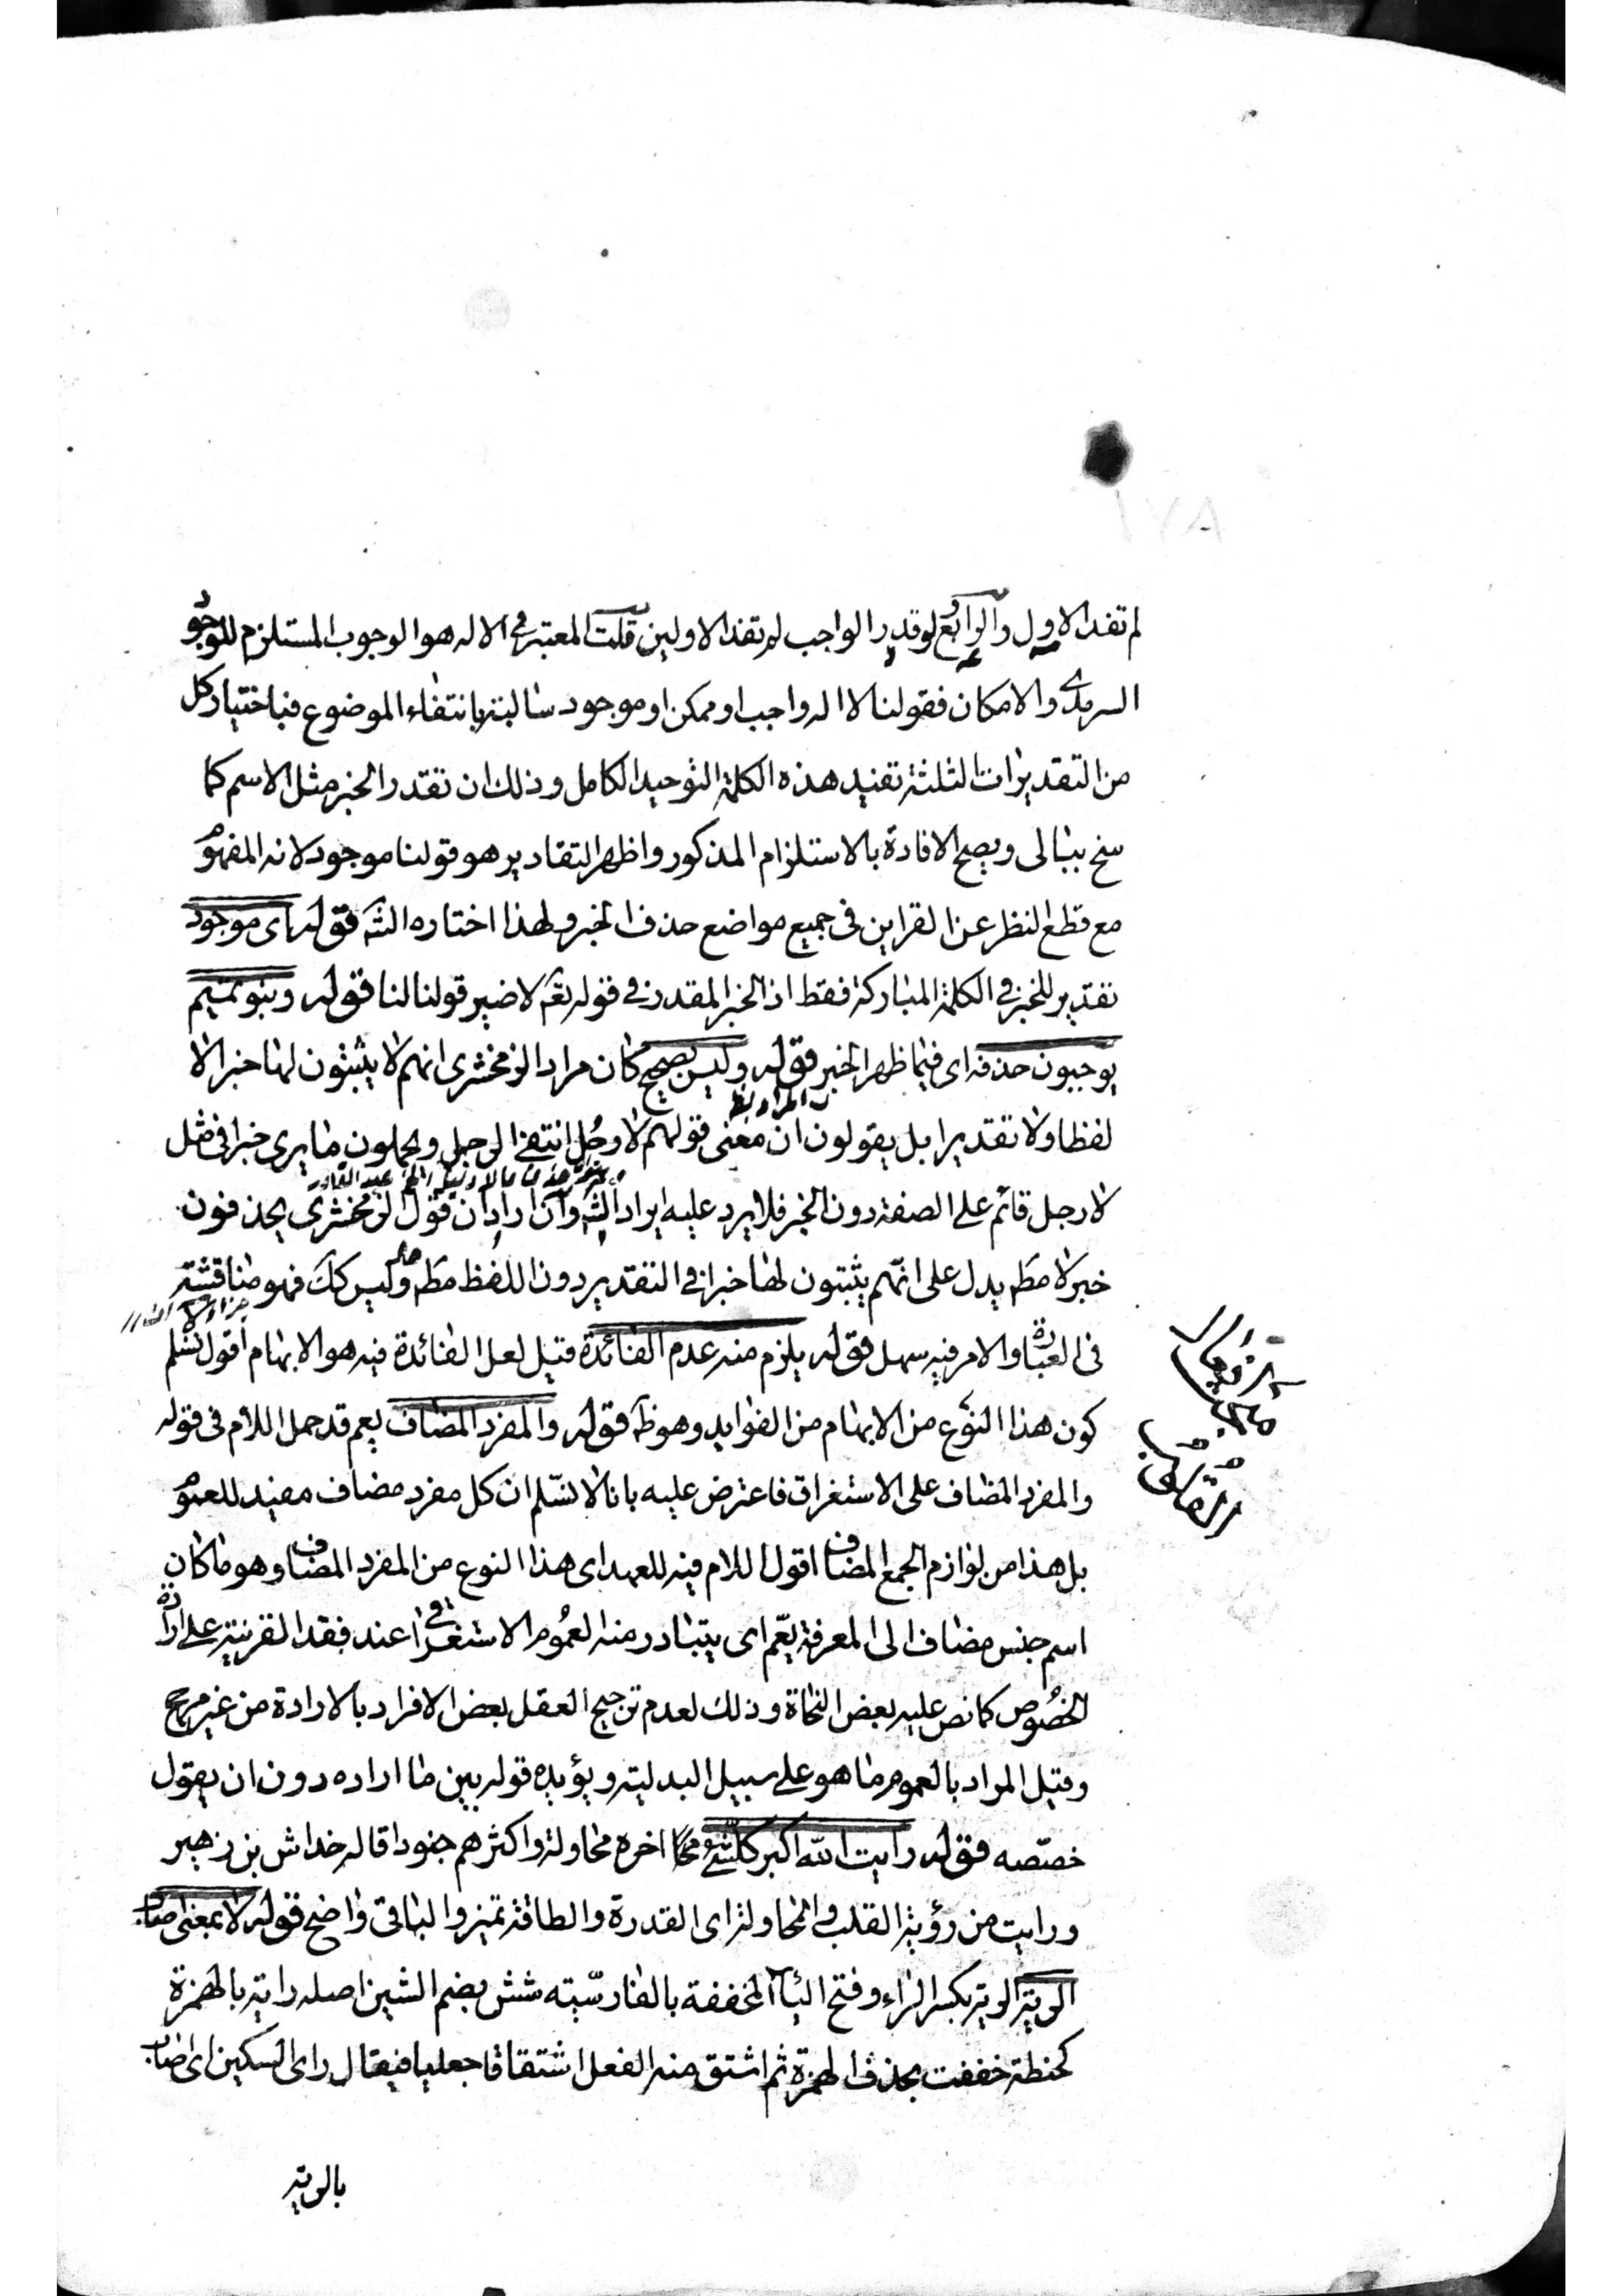 ١٧٨
لم تفد الاول والرابع ولو قدر الواجب لم تفد الاولين قلت المعتبر في الاله هو الوجوب المستلزم للوجود
السرمدي والامكان فقولنا لا اله واجب او ممكن او موجود سالبة بانتفاء الموضوع فباختيار كل
من التقديرات الثلثة تفيد هذه الكلمة التوحيد الكامل وذلك ان تقدر الخبر مثل الاسم كما
سنح ببالى ويصح الافادة بالاستلزام المذكور واظهر التقادير هو قولنا موجود لانه المفهوم
مع قطع النظر عن القراين فى جميع مواضع حذف الخبر ولهذا اختاره الشه قوله اى موجود
تقدير للخبر فى الكلمة المباركة فقط اذ الخبر المقدر فى قوله تعه لا ضير قولنا لنا قوله وبنو تميم
يوجبون حذفه اى فيما ظهر الخبر قوله وليس بصحيح كان مراد الزمخشرى انهم لا يثبتون لها خبرا لا
لفظا ولا تقديرا بل يقولون ان معنى قولهم لا رجل انتفى الرجل ويحملون ما يرى خبرا فى مثل
لا رجل قائم على الصفة دون الخبر فلا يرد عليه ايراد الشه وان اراد ان قول الزمخشرى يحذفون
خبر لا مطه يدل على انهم يثبتون لها خبرا فى التقدير دون اللفظ مطه وليس كك فهو مناقشة
فى العبارة والامر فيه سهل قوله يلزم منه عدم الفائدة قيل لعل الفائدة فيه هو الابهام اقول نسلم
كون هذا النوع من الابهام من الفوايد وهو ظه قوله والمفرد المضاف يعم قد حمل اللام فى قوله
والمفرد المضاف على الاستغراق فاعترض عليه بانا لا نسلم ان كل مفرد مضاف مفيد للعموم
بل هذا من لوازم الجمع المضاف اقول اللام فيه للعهد اى هذا النوع من المفرد المضاف وهو ما كان
اسم جنس مضاف الى المعرفة يعم اى يتبادر منه العموم الاستغراقى عند فقد القرينة على ارادة
الخصوص كما نص عليه بعض النحاة وذلك لعدم ترجيح العقل بعض الافراد بالارادة من غير مرجح
وقيل المراد بالعموم ما هو على سبيل البدلية ويؤيده قوله بين ما اراده دون ان يقول
خصصه قوله رايت الله اكبر كل شئ اخره محاولة واكثرهم جنودا قاله خداش بن زهير
ورايت من رؤية القلب والمحاولة اى القدرة والطاقة تميز والباقى واضح قوله لا بمعنى اصاب
الرية الرية بكسر الراء وفتح الياء المخففة بالفارسية شش بضم الشين اصله رائة بالهمزة
كحنطة خففت بحذف الهمزة ثم اشتق منه الفعل اشتقاقا جعليا فيقال راى السكين اى اصاب
بالرية